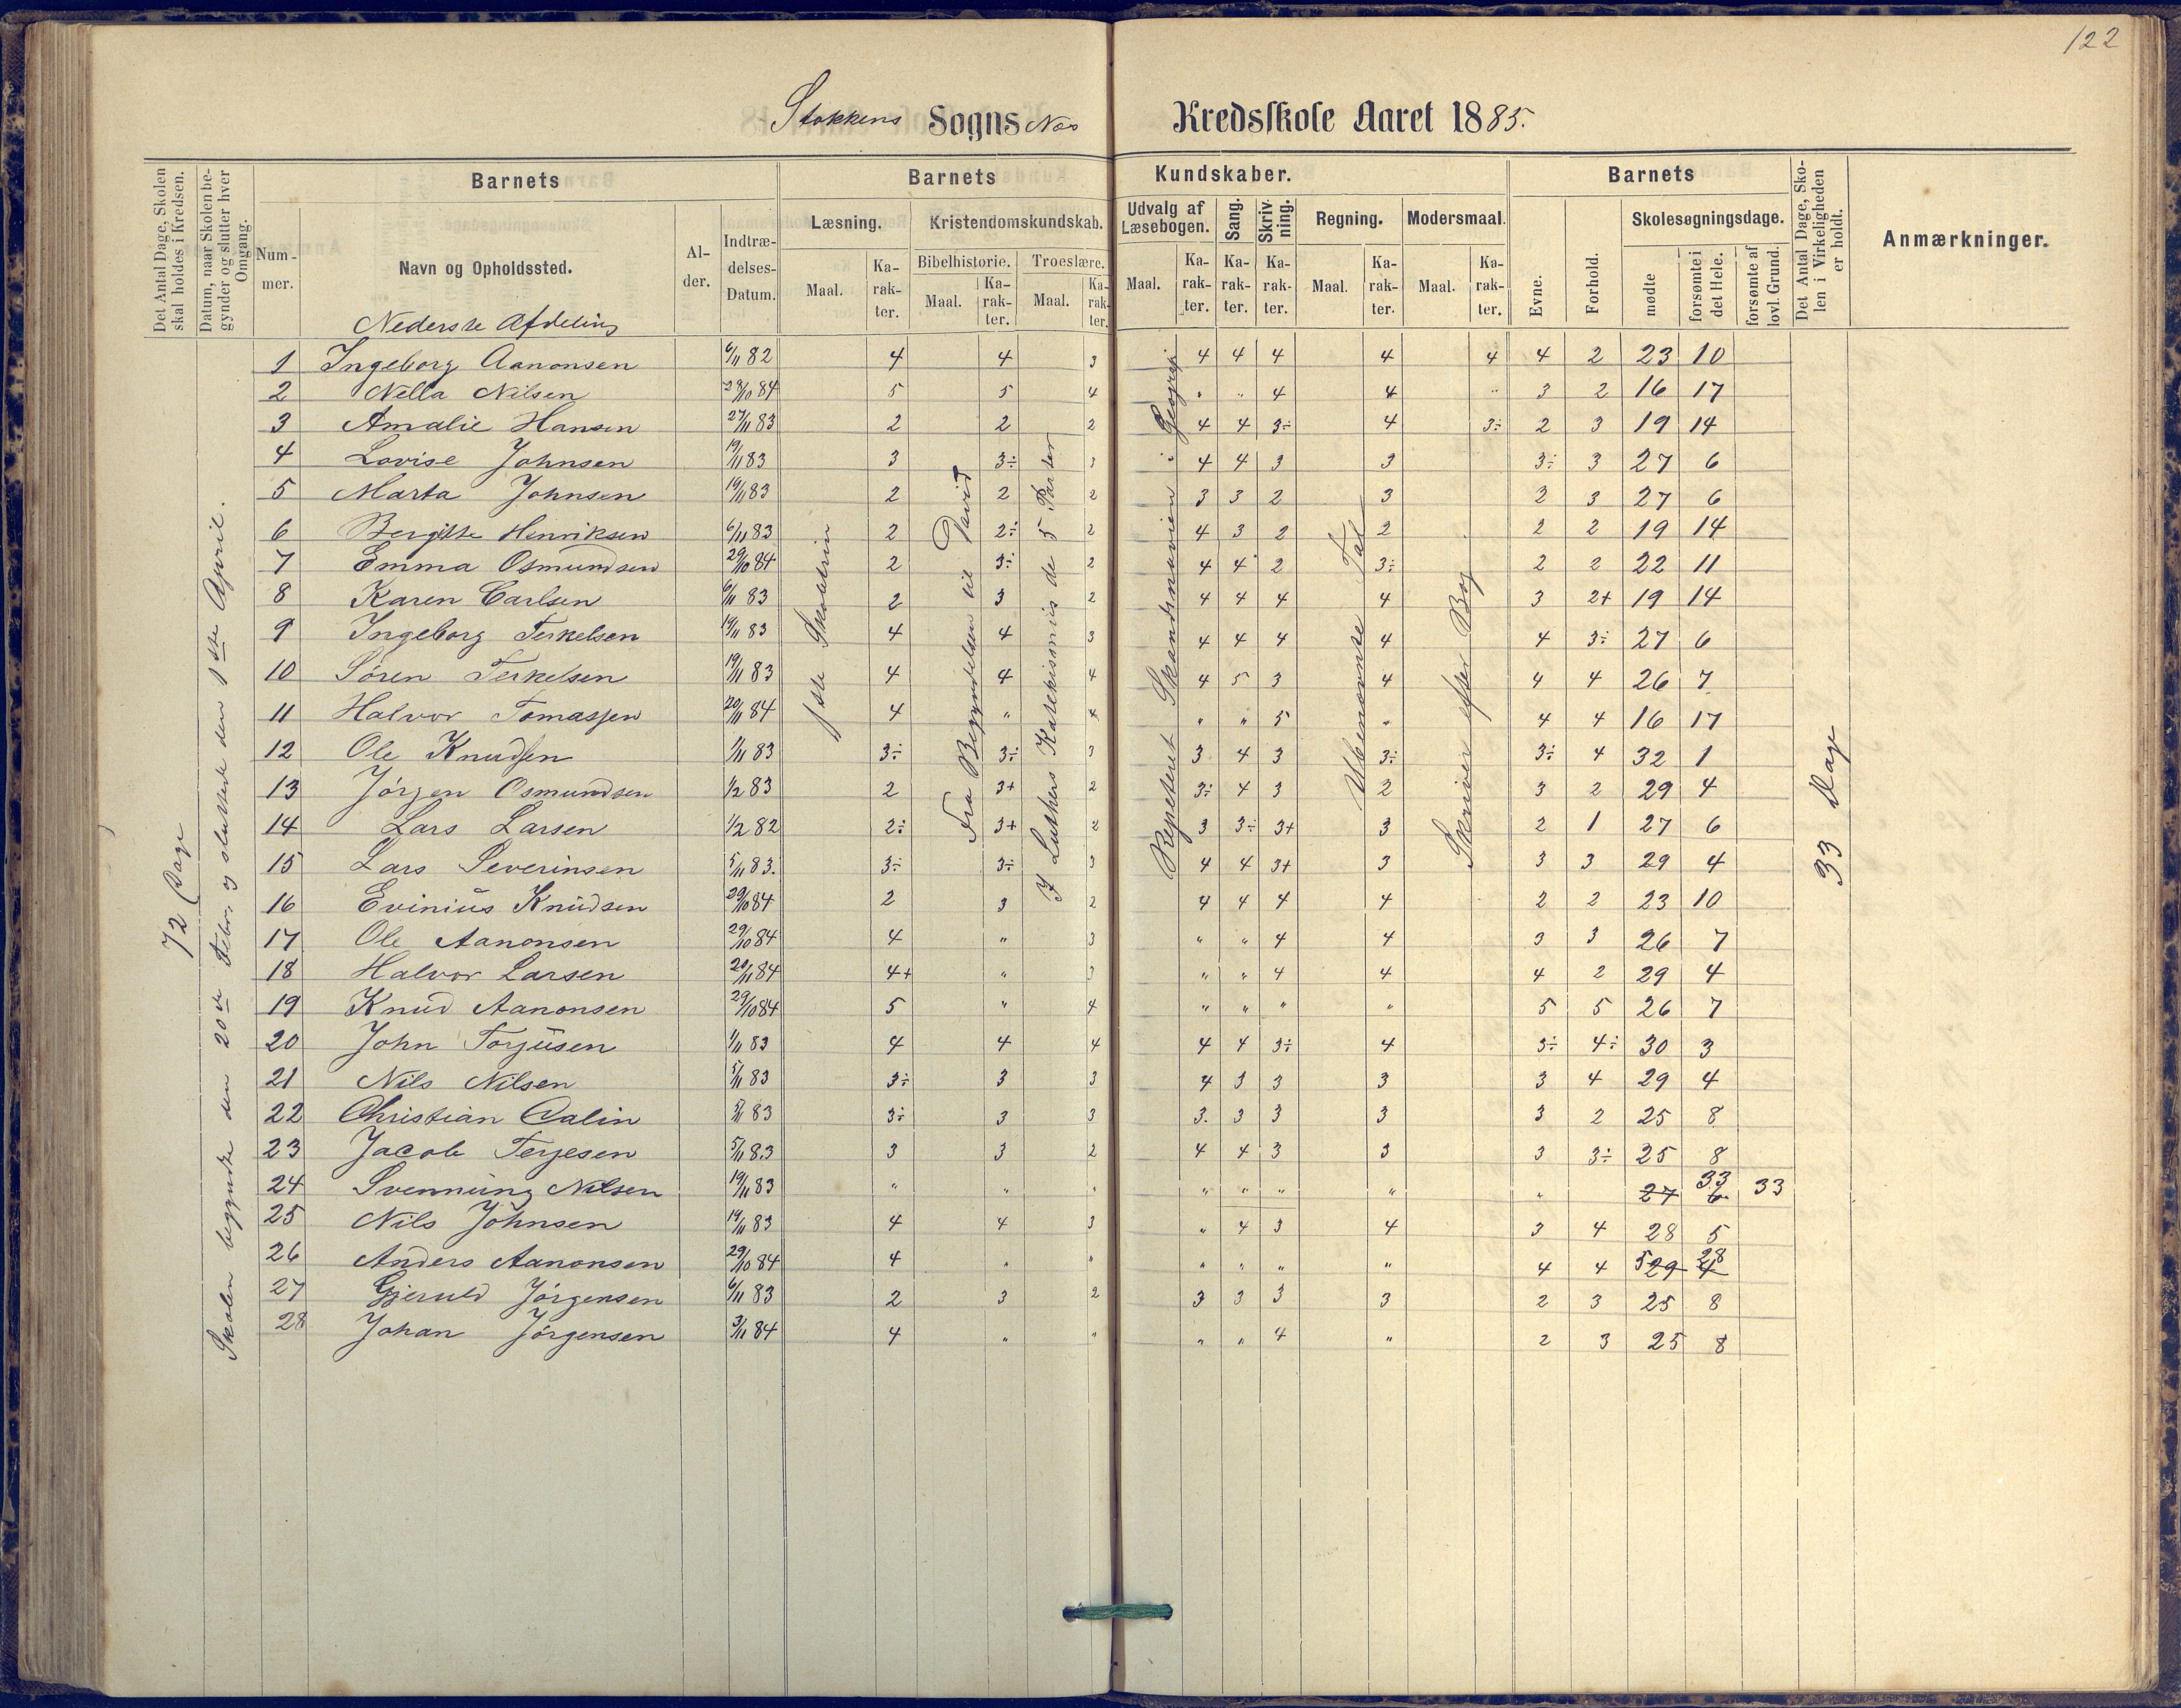 122
Stokkens Sogns Næs Kredsskole Aaret 1885.
Det Antal Dage, Skolen skal holdes i Kredsen.
Datum, naar Skolen begynder og slutter hver Omgang.
Nummer.
Barnets
Navn og Opholdssted.
Alder.
Indtrædelses-Datum.
Barnets Kundskaber.
Læsning. Maal. Karakter.
Kristendomskundskab.
Bibelhistorie. Maal. Karakter.
Troeslære. Maal. Karakter.
Udvalg af Læsebogen. Maal. Karakter.
Sang. Karakter.
Skrivning. Karakter.
Regning. Maal. Karakter.
Modersmaal. Maal. Karakter.
Barnets
Evne. Forhold.
Skolesøgningsdage.
mødte forsømte i det Hele. forsømte af lovl. Grund.
Det Antal Dage, Skolen i Virkeligheden er holdt.
Anmærkninger.
Nederste Afdeling
72 Dage
Skolen begyndte den 20de Febr. og sluttede den 1ste April.
1ste Skoletrin
Fra Begyndelsen til David
I Luthers Katekismus de 5 Parter
Repeteret Skandinavien i Geografi
Ubenævnte Tal
Skriver efter Bog
33 Dage
1 Ingeborg Aanonsen 6/11 82 4 4 3 4 4 4 4 4 4 2 23 10
2 Nella Nilsen 29/10 84 5 5 4 " " 4 4 " 3 2 16 17
3 Amalie Hansen 27/11 83 2 2 2 4 4 3÷ 4 3÷ 2 3 19 14
4 Lovise Johnsen 19/11 83 3 3÷ 3 4 4 3 3 3÷ 3 27 6
5 Marta Johnsen 19/11 83 2 2 2 3 3 2 3 2 3 27 6
6 Bergitte Henriksen 6/11 83 2 2÷ 2 4 3 2 2 2 2 19 14
7 Emma Osmundsen 29/10 84 2 3÷ 2 4 4 2 3÷ 2 2 22 11
8 Karen Carlsen 6/11 83 2 3 2 4 4 4 4 3 2+ 19 14
9 Ingeborg Terkelsen 19/11 83 4 4 3 4 4 4 4 4 3÷ 27 6
10 Søren Terkelsen 19/11 83 4 4 4 4 5 3 4 4 4 26 7
11 Halvor Tomassen 20/11 84 4 " 4 " " 5 " 4 4 16 17
12 Ole Knudsen 1/11 83 3÷ 3÷ 3 3 4 3 3÷ 3÷ 4 32 1
13 Jørgen Osmundsen 1/2 83 2 3+ 2 3÷ 4 3 2 3 2 29 4
14 Lars Larsen 1/2 82 2÷ 3+ 2 3 3÷ 3+ 3 2 1 27 6
15 Lars Severinsen 5/11 83. 3÷ 3÷ 3 4 4 3+ 3 3 3 29 4
16 Evinius Knudsen 29/10 84 2 3 2 4 4 4 4 2 2 23 10
17 Ole Aanonsen 29/10 84 4 " 3 " " 4 4 3 3 26 7
18 Halvor Larsen 20/11 84 4+ " 3 " " 4 4 4 2 29 4
19 Knud Aanonsen 29/10 84 5 " 4 " " " " 5 5 26 7
20 John Torjusen 1/11 83 4 4 4 4 4 3÷ 4 3÷ 4÷ 30 3
21 Nils Nilsen 5/11 83 3÷ 3 3 4 3 3 3 3 4 29 4
22 Christian Dalin 5/11 83 3÷ 3 3 3. 3 3 3 3 2 25 8
23 Jacob Terjesen 5/11 83 3 3 2 4 4 3 3 3 3÷ 25 8
24 Svennung Nilsen 19/11 83 " " " " " " " " 27 6 33 33
25 Nils Johnsen 19/11 83 4 4 3 " 4 3 4 3 4 28 5
26 Anders Aanonsen 29/10 84 4 " " " " " " 4 4 5 29 28 4
27 Gjeruld Jørgensen 6/11 83 2 3 2 3 3 3 3 2 3 25 8
28 Johan Jørgensen 3/11 84 4 " " " " 4 " 2 3 25 8